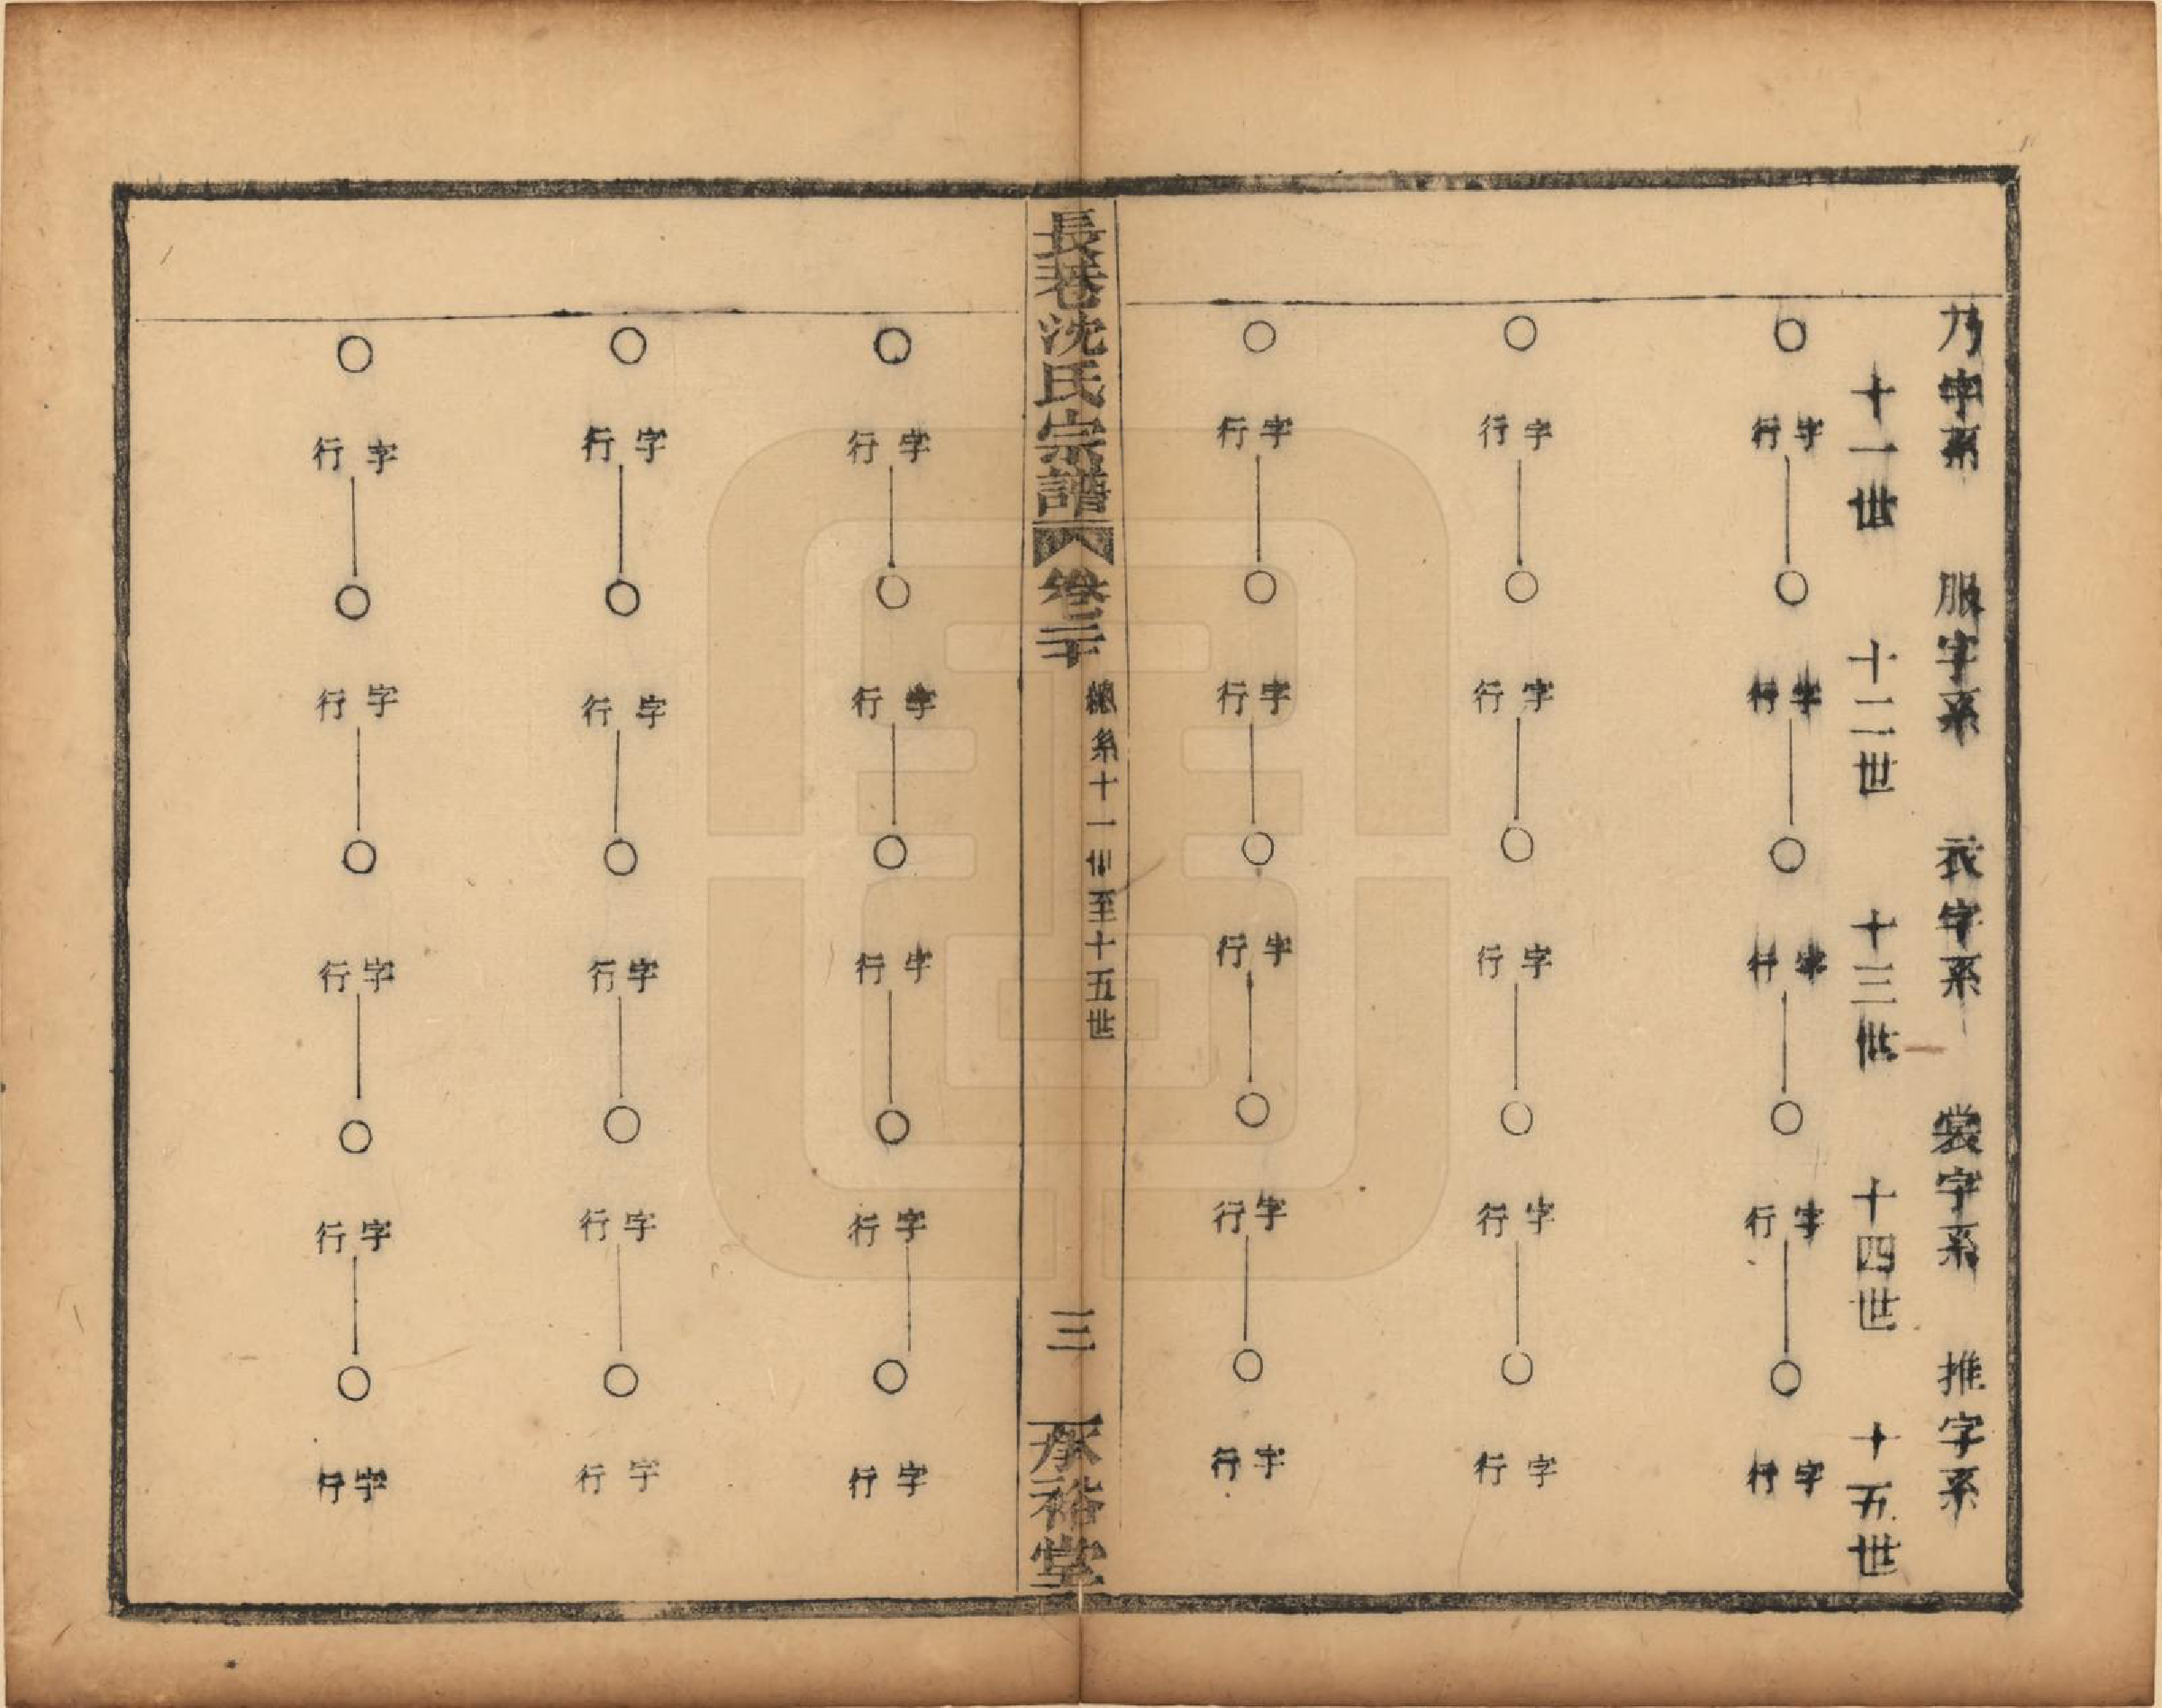 乃字系 服字系 衣字系 裳字系 推字系
十一世 十二世 十三世 十四世 十五世
○ 字行 ○ 字行 ○ 字行 ○ 字行 ○ 字行
○ 字行 ○ 字行 ○ 字行 ○ 字行 ○ 字行
○ 字行 ○ 字行 ○ 字行 ○ 字行 ○ 字行
長巷沈氏宗譜 卷二十 總系十一世至十五世 三 承裕堂
○ 字行 ○ 字行 ○ 字行 ○ 字行 ○ 字行
○ 字行 ○ 字行 ○ 字行 ○ 字行 ○ 字行
○ 字行 ○ 字行 ○ 字行 ○ 字行 ○ 字行